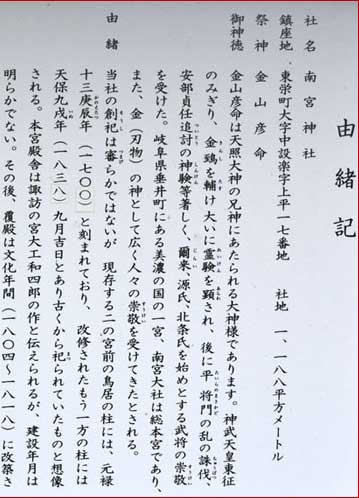 由緒記
社名 南宮神社
鎮座地 東栄町大字中設楽字上平一七番地 社地 一、一八八平方メートル
祭神 金山彦命
御神徳 金山彦命は天照大神の兄神にあたられる大神様であります。神武天皇東征
のみぎり、金鵄を輔け大いに霊験を顕され、後に平将門の乱の誅伐、
安部貞任追討の神験等著しく、爾来、源氏、北条氏を始めとする武将の崇敬
を受けた。岐阜県垂井町にある美濃の国の一宮、南宮大社は総本宮であり、
また、金(刃物)の神として広く人々の崇敬を受けてきたとされる。
由緒 当社の創祀は審らかではないが 現存する二の宮前の鳥居の柱には、元禄
十三庚辰年(一七〇〇)と刻まれており、改修されたもう一方の柱には
天保九戌年(一八三八)九月吉日とあり古くから祀られていたものと想像
される。本宮殿舎は諏訪の宮大工和四郎の作と伝えられるが、建設年月は
明らかでない。その後、覆殿は文化年間(一八〇四〜一八一八)に改築さ